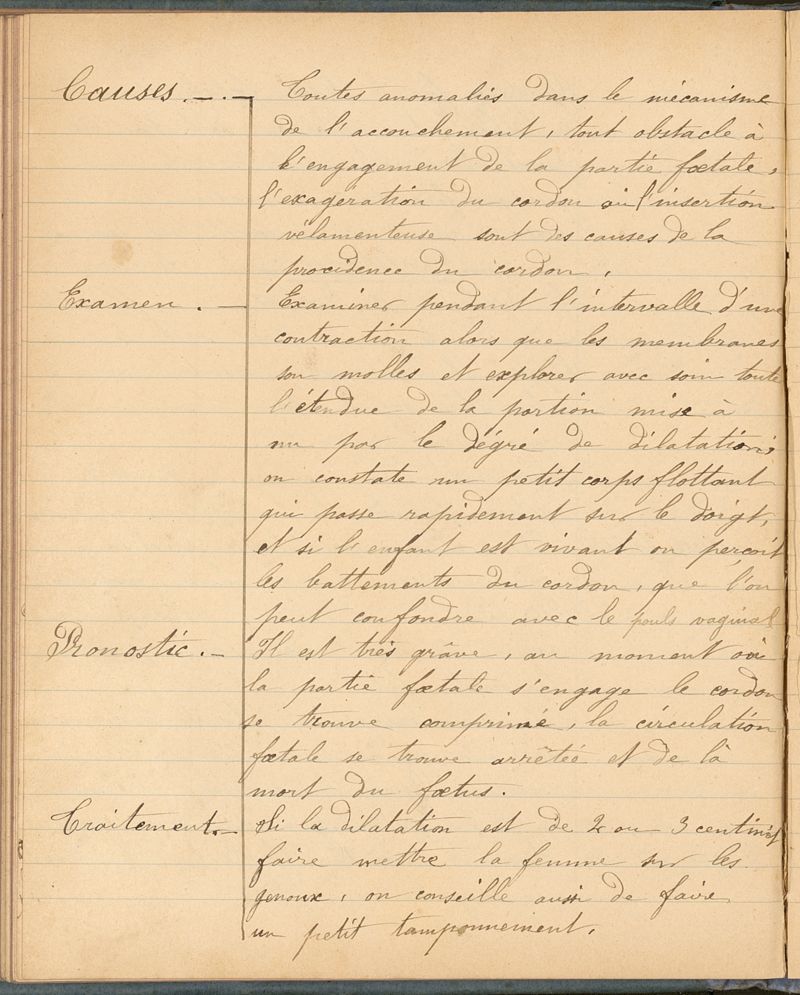 Causes. – . – Toutes anomaliés dans le mécanisme
de l'accouchement, tout obstacle à
l'engagement de la partié fœtale,
l'exagération du cordon ou l'insertion
vélamenteuse sont des causes de la
procidence du cordon.
Examen . – Examiner pendant l'intervalle d'une
contraction alors que les membranes
son molles et explorer avec soin toute
l'étendue de la portion mise à
nu par le dégré de dilatation;
on constate un petit corps flottant
qui passe rapidement sur le doigt,
et si l'enfant est vivant on perçoit
les battements du cordon, que l'on
peut confondre avec le pouls vaginal
Pronostic. – Il est très grâve, au moment où
la partié fœtale s'engage le cordon
se trouve comprimé, la circulation
fœtale se trouve arrêtée et de là
mort du fœtus.
Traitement. – Si la dilatation est de 2 ou 3 centim
faire mettre la femme sur les
genoux, on conseille aussi de faire
un petit tamponnement.